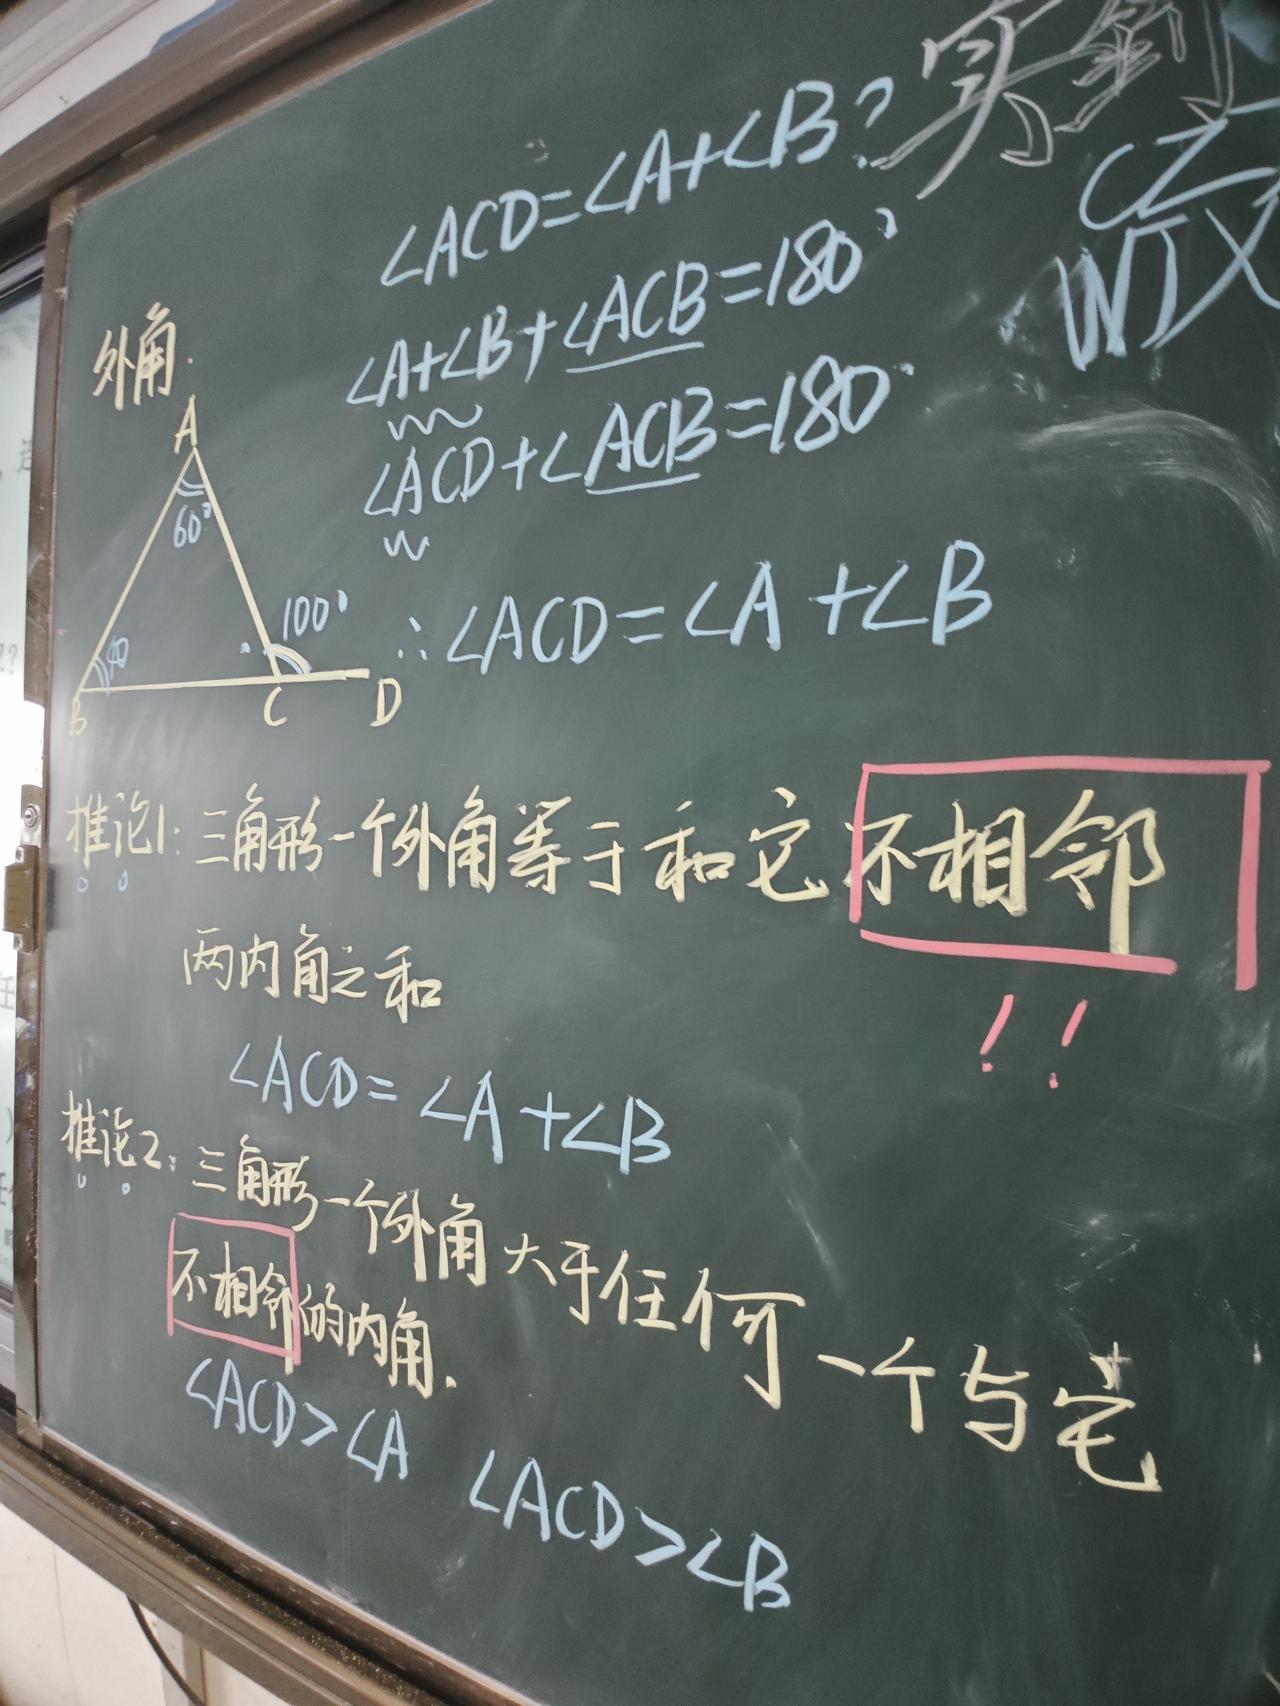 ∠ACD=∠A+∠B?
∠A+∠B+∠ACB=180°
∠ACD+∠ACB=180°
∴∠ACD=∠A+∠B
外角.
A
60°
40
100°
B
C
D
推论1:三角形一个外角等于和它不相邻
两内角之和
!!
∠ACD=∠A+∠B
推论2:三角形一个外角大于任何一个与它
不相邻的内角.
∠ACD>∠A ∠ACD>∠B
CZ
WJX